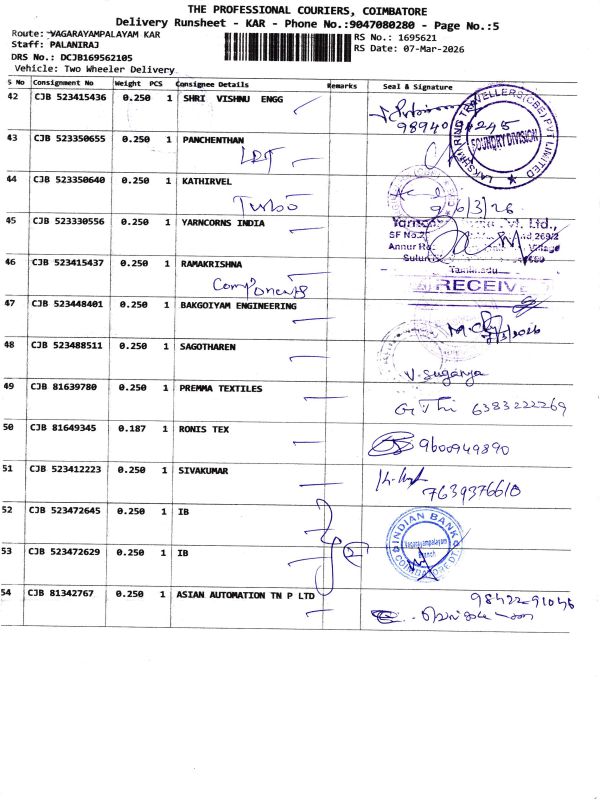 THE PROFESSIONAL COURIERS, COIMBATORE
Delivery Runsheet - KAR - Phone No.:9047080280 - Page No.:5
Route: VAGARAYAMPALAYAM KAR
RS No.: 1695621
Staff: PALANIRAJ
RS Date: 07-Mar-2026
DRS No.: DCJB169562105
Vehicle: Two Wheeler Delivery
S No Consignment No Weight PCS Consignee Details Remarks Seal & Signature
42 CJB 523415436 0.250 1 SHRI VISHNU ENGG
LAKSHMI RING TRAVELLERS(CBE) PVT LIMITED
FOUNDRY DIVISION
43 CJB 523350655 0.250 1 PANCHENTHAN
44 CJB 523350640 0.250 1 KATHIRVEL
Turbo
6/3/26
45 CJB 523330556 0.250 1 YARNCORNS INDIA
vt. Ltd.,
SF No.2
269/2
Annur
Village
Sulur
Tamilnadu
46 CJB 523415437 0.250 1 RAMAKRISHNA
Components
RECEIV
47 CJB 523448401 0.250 1 BAKGOIYAM ENGINEERING
48 CJB 523488511 0.250 1 SAGOTHAREN
V. Suganya
49 CJB 81639780 0.250 1 PREMMA TEXTILES
6383222269
50 CJB 81649345 0.187 1 RONIS TEX
9600949890
51 CJB 523412223 0.250 1 SIVAKUMAR
7639376610
52 CJB 523472645 0.250 1 IB
INDIAN BANK
Vagarayampalayam
Branch
COIMBATORE DT.
53 CJB 523472629 0.250 1 IB
54 CJB 81342767 0.250 1 ASIAN AUTOMATION TN P LTD
98422-91046